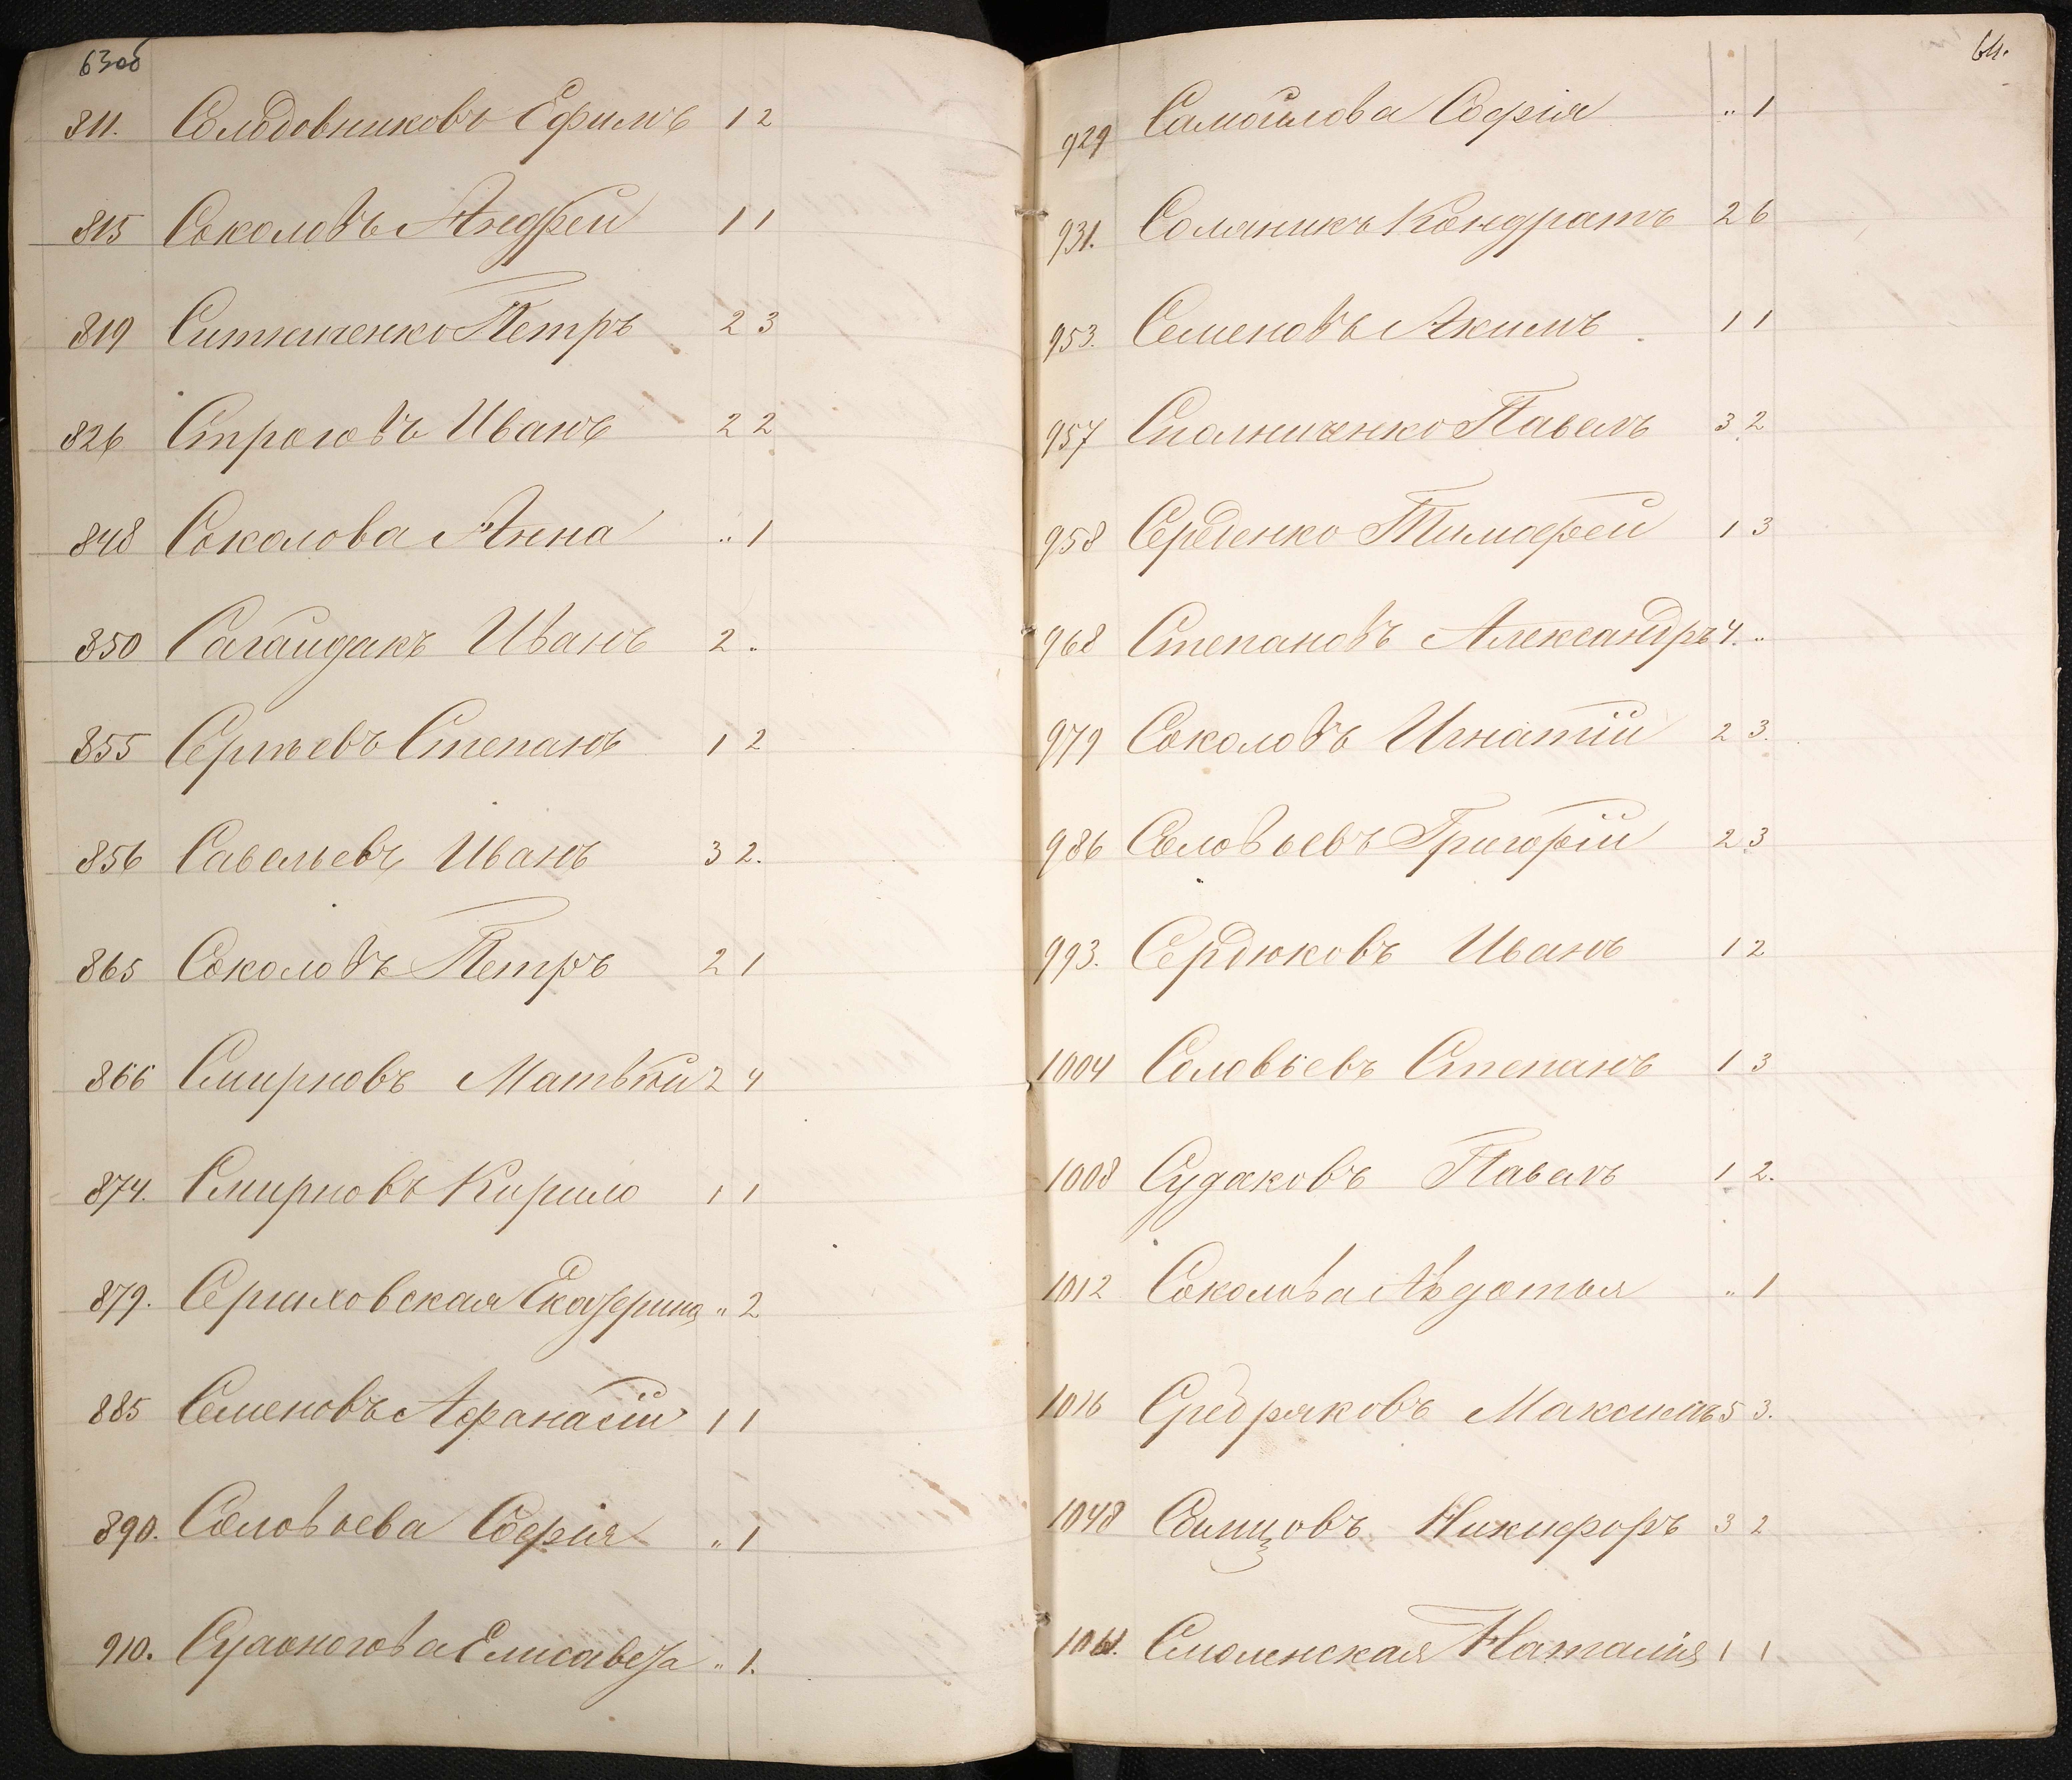 63об
811. Солодовниковъ Ефимъ 1 2
815 Соколовъ Андрей 1 1
819 Ситниченко Петръ 2 3
826 Строговъ Иванъ 2 2
848 Соколова Анна " 1
850 Сагайдакъ Иванъ 2 "
855 Сергѣевъ Степанъ 1 2
856 Савельевъ Иванъ 3 2.
865 Соколовъ Петръ 2 1
866 Смирновъ Матвѣй 2 4
874. Смирновъ Кирило 1 1
879. Екатерина " 2
885 Семеновъ Афанасій 1 1
890. Соловьева Софія " 1
910. Елисавета " 1.
64.
929 Самойлова Софія " 1
931. Соляникъ Кондратъ 2 6
953. Семеновъ Акимъ 1 1
957 Павелъ 3 2
958 Сергіенко Тимофей 1 3
968 Степановъ Александръ 4. "
979 Соколовъ Игнатій 2 3.
986 Соловьевъ Григорій 2 3
993. Сердюковъ Иванъ 1 2
1004 Соловьевъ Степанъ 1 3
1008 Судаковъ Павелъ 1 2.
1012 Соколова Авдотья " 1
1016 Максимъ 5 3.
1048 Никифоръ 3 2
Смоленская Наталія 1 1